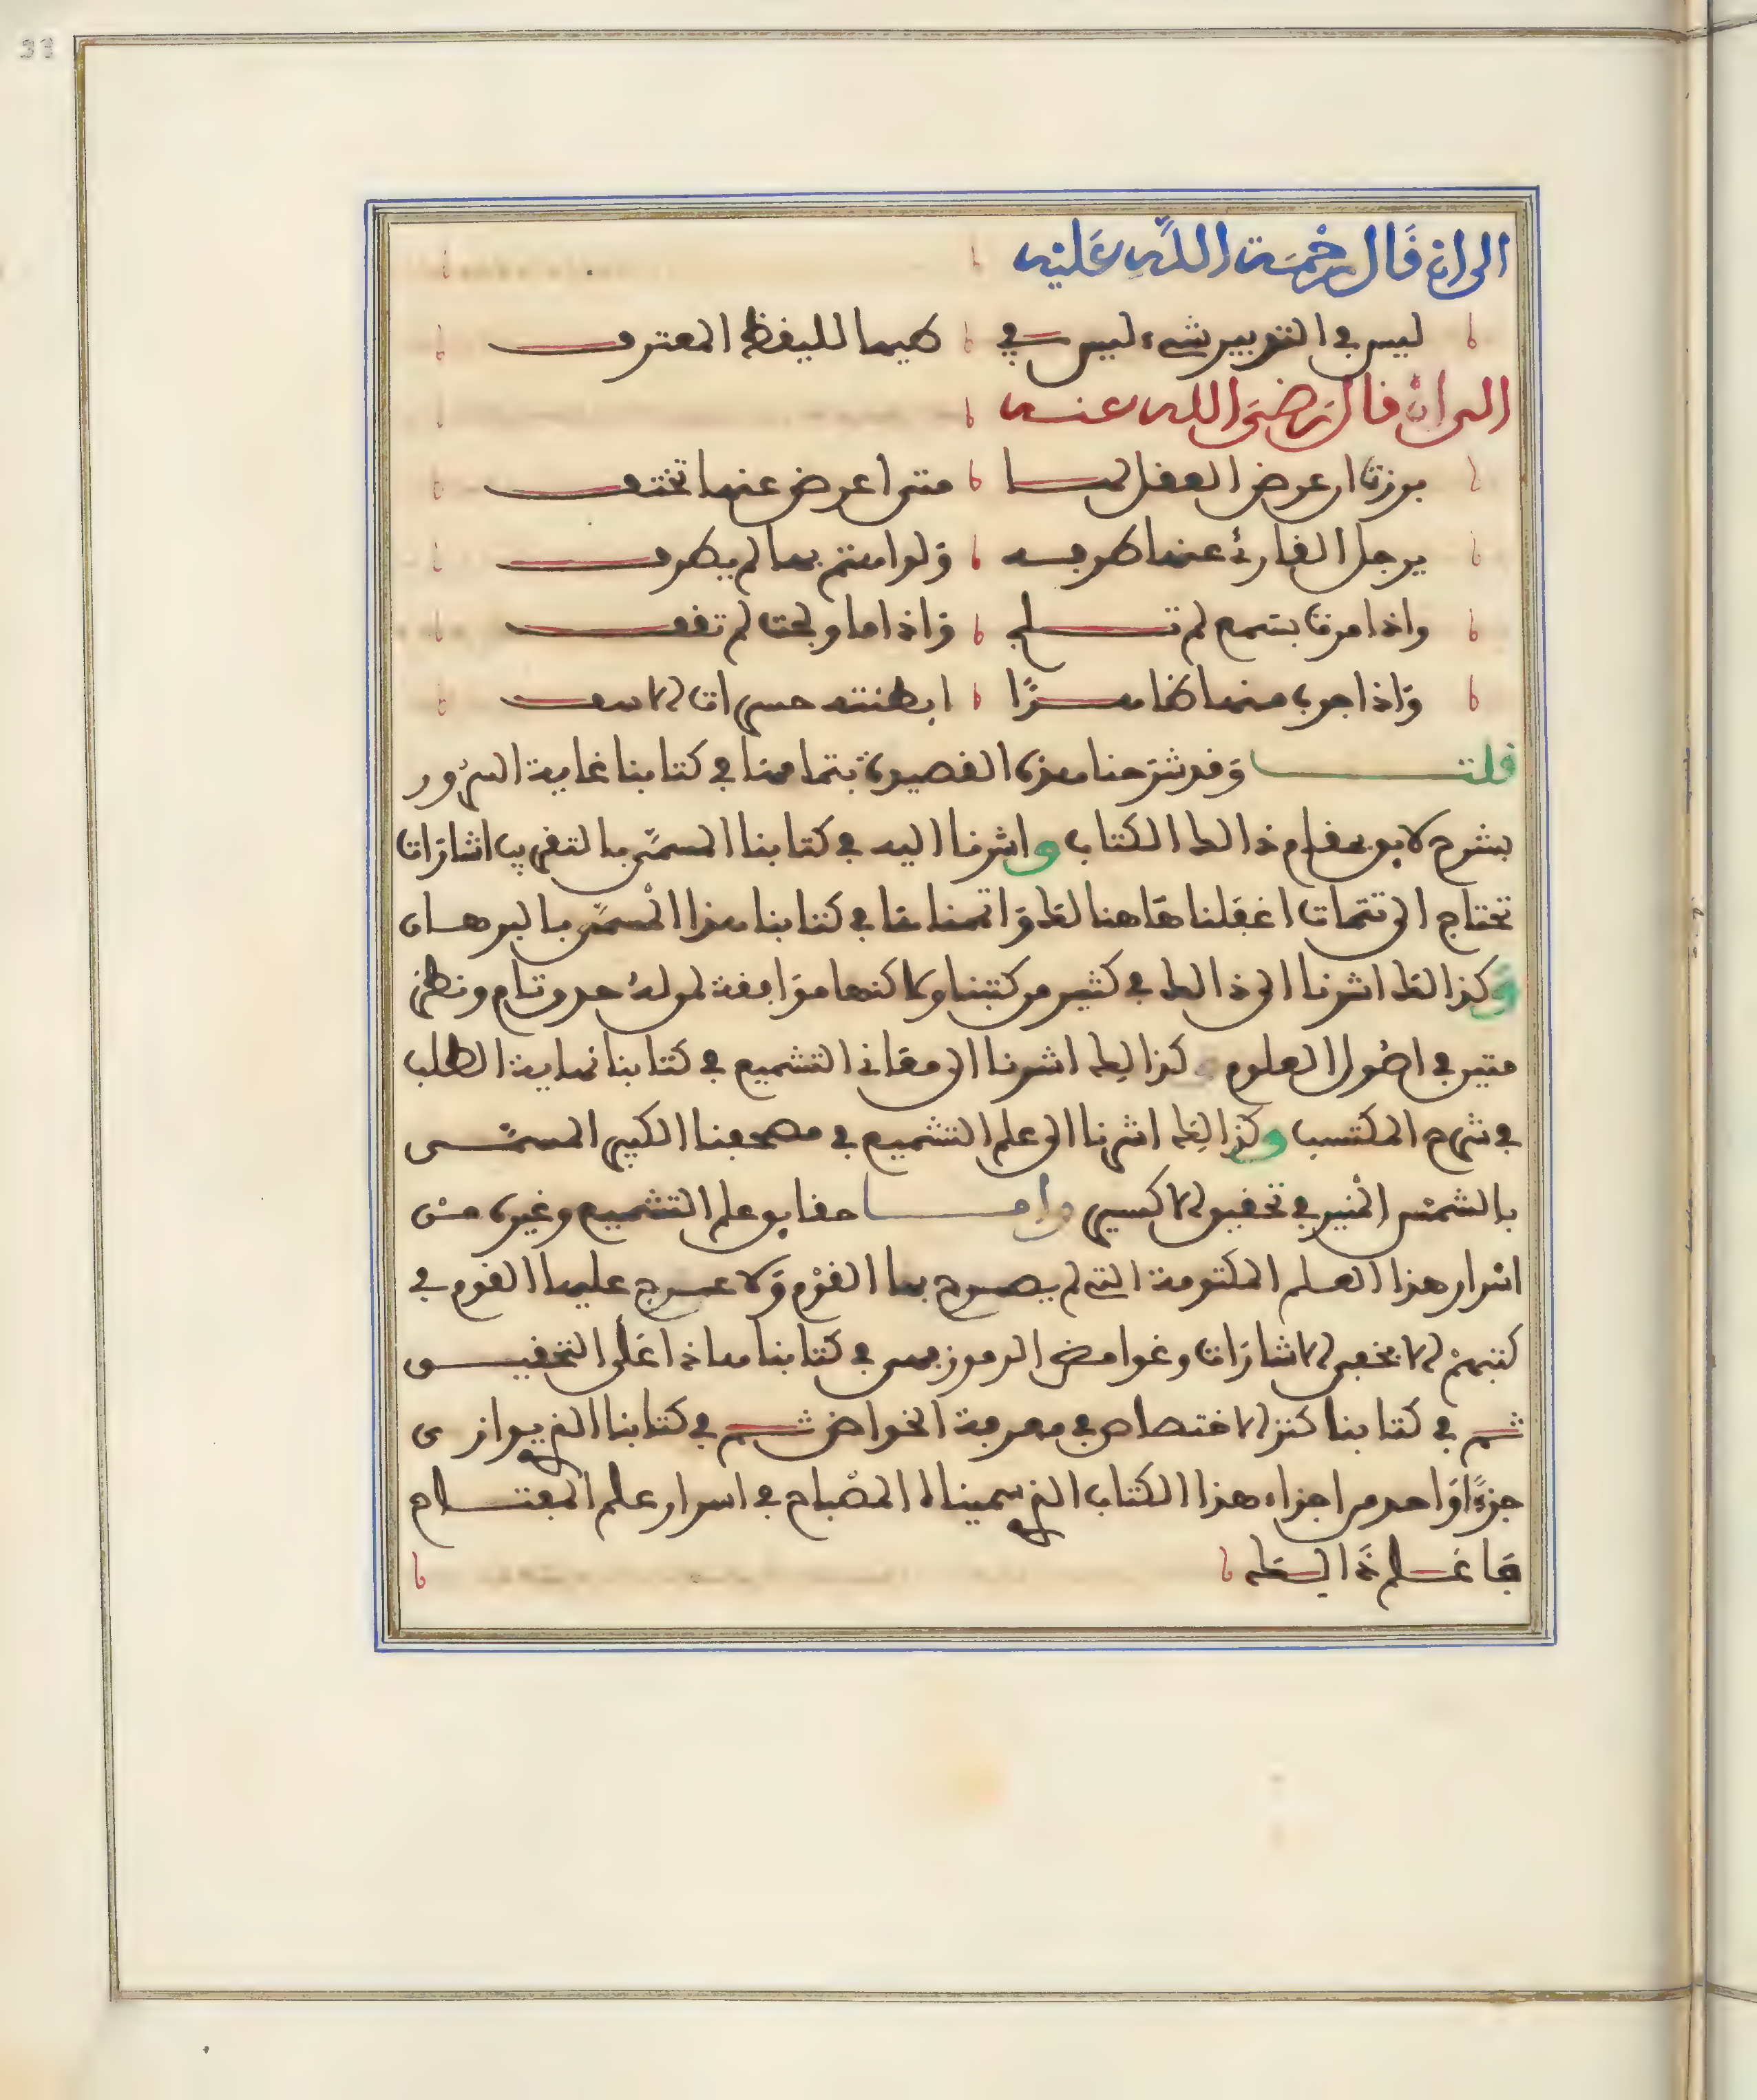 33
الى ان قال رحمة الله عليه
ليس في التدبير شيء ليس في كيما لليفظ المعترف
الى ان قال رضى الله عنه
برزت ان عرض العقل لها متى اعرض عنها تختف
يرجل القارئ عنها طرفه ولو اهتم بها لم يطرف
واذا مرت بسمع لم تلج واذا ما ولجت لم تقف
واذا جرب منها ظاهرًا ابطنته حسرات الاسف
قلت وقد شرحنا هذه القصيدة بتمامها في كتابنا غاية السرور
بشرح لايق بمقام ذالك الكتاب واشرنا اليه في كتابنا المسمّى بالتقريب اشارات
تحتاج الى تتمات اغفلناها هنالك واتممناها في كتابنا هذا المسمّى بالبرهان
وكذالك اشرنا الى ذالك في كثير من كتبنا ولاكنها موافقة لمن له حدس تام ونظر
متين في اصول العلوم وكذالك اشرنا الى معاني التشميع في كتابنا نهاية الطلب
في شرح المكتسب وكذالك اشرنا الى علم التشميع في مصحفنا الكبير المسمّى
بالشمس المنير في تحقيق الاكسير واما حقايق علم التشميع وغيره من
اسرار هذا العلم المكتومة التي لم يصرح بها القوم ولا عرج عليها القوم في
كتبهم الا بخفى الاشارات وغوامض الرموز فهى في كتابنا هاذا اعلى التحقيق
ثم في كتابنا كنز الاختصاص في معرفة الخواص ثم في كتابنا الذي يوازى
جزءًا واحد من اجزاء هذا الكتاب الذي سميناه المصباح في اسرار علم المفتاح
فاعلم ذالك